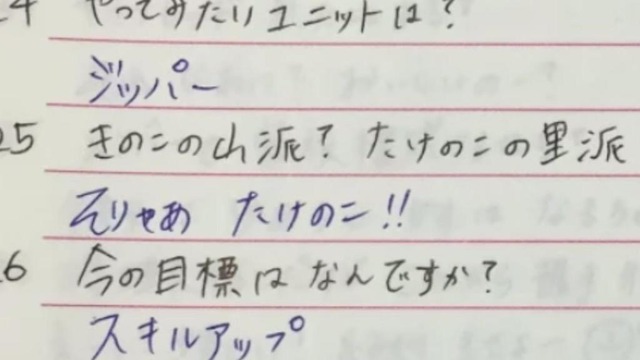 24 やってみたいユニットは?
ジッパー
25 きのこの山派? たけのこの里派
そりゃあ たけのこ!!
26 今の目標はなんですか?
スキルアップ